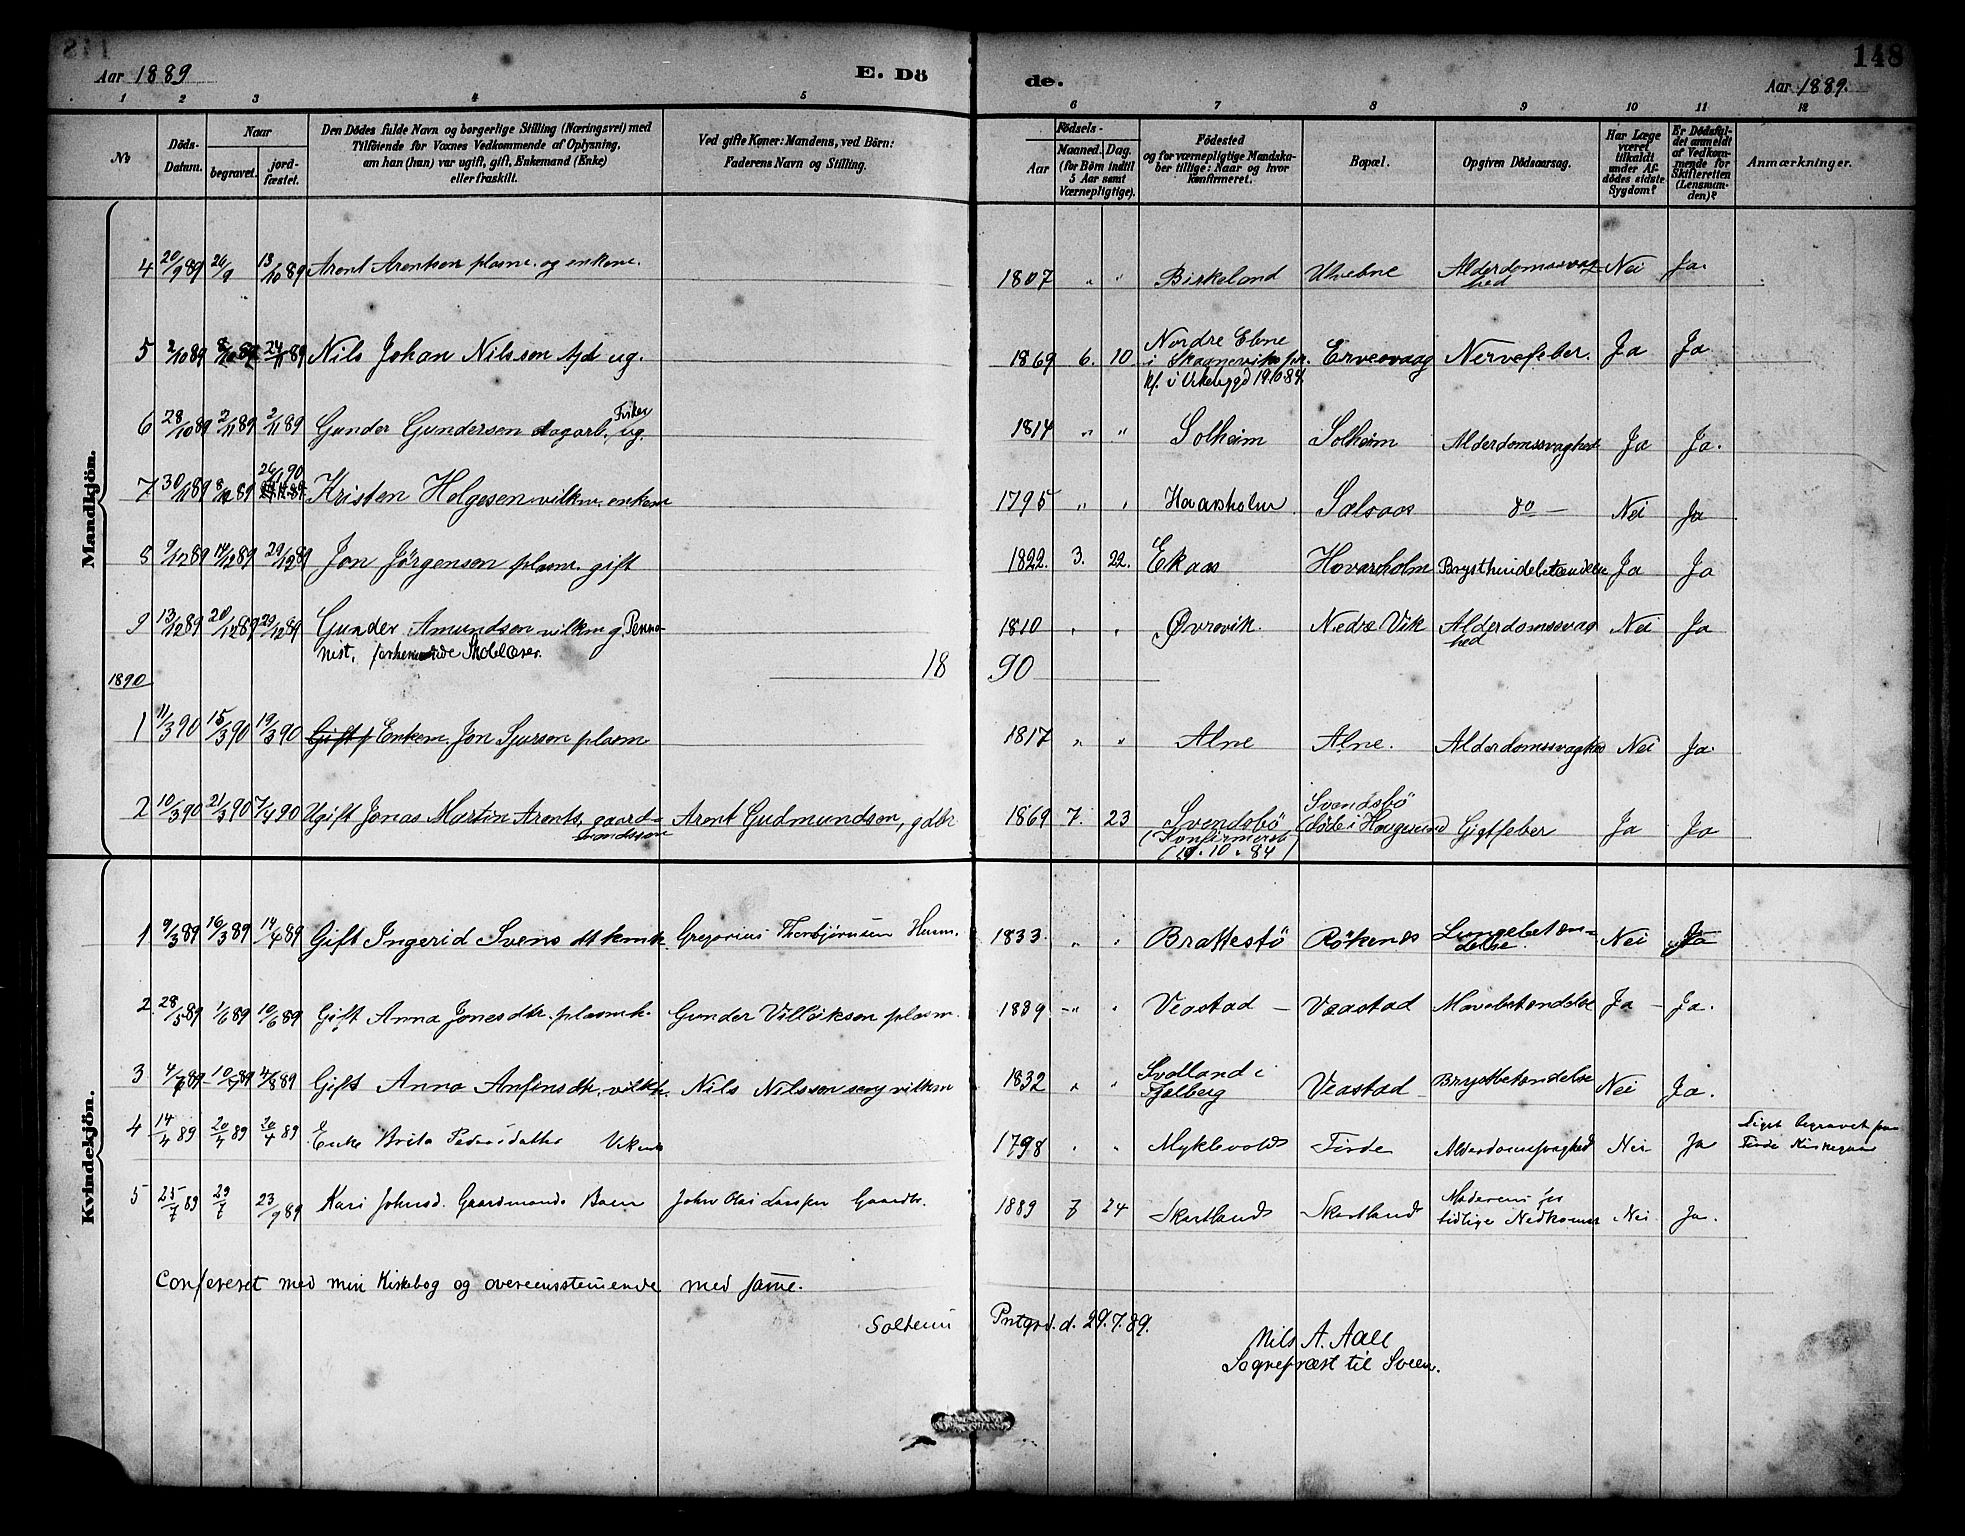 148
Aar 1889
E. Dö
de.
Aar 1889.
1 2 3 4 5 6 7 8 9 10 11 12
No
Döds-Datum.
Naar
begravet.
jord-fæstet.
Den Dödes fulde Navn og borgerlige Stilling (Næringsvei) med
Tilföiende for Voxnes Vedkommende af Oplysning,
om han (hun) var ugift, gift, Enkemand (Enke)
eller fraskilt.
Ved gifte Koner: Mandens, ved Börn:
Faderens Navn og Stilling.
Födsels-
Aar
Maaned. Dag.
(for Börn indtil
5 Aar samt
Værnepligtige).
Födested
og for værnepligtige Mandska-
ber tillige: Naar og hvor
konfirmeret.
Bopæl.
Opgiven Dödsaarsag.
Har Læge
været
tilkaldt
under Af-
dödes sidste
Sygdom?
Er Dödsfal-
det anmeldt
af Vedkom-
mende for
Skifteretten
(Lensman-
den)?
Anmærkninger.
Mandkjön.
4 20/9 89 26/9 13/10 89 Arent Arentsen plasm. og enkem. 1807 " " Birkeland Alderdomssvag-hed Nei Ja.
5 2/10 89 8/10 89 24/11 89 Nils Johan Nilsson ug. 1869 6. 10. Nordre Ebne i Ervesvaag Nervefeber. Ja Ja.
6 28/10 89 2/11 89 2/11 89 Gunder Gundersen dagarb. Fisker ug. 1814 " " Solheim Solheim Alderdomssvaghed Ja Ja.
7 30/11 89 8/12 89 26/1 90 Kristen Helgesen vilkm. enkem 1795 " " Hovarsholm Sælsaas do — Nei Ja
8 9/12 89 14/12 89 29/12 89 Jon Jörgensen plasm. gift 1822. 3. 22. Ekaas Hovarsholm Brysthindebetændelse Ja Ja
9 13/12 89 20/12 89 29/12 89 Gunder Amundsen vilkm g Penno-
nist, forhenværende Skolelærer. 1810 " " Øvrevik. Nedre Vik Alderdomssvag-hed Nei Ja
1890 18 90
1 11/3 90 15/3 90 19/3 90 Enkem. Jon Sjurson plasm 1817 " " Alne Alne. Alderdomssvaghed Nei Ja.
2 10/3 90 21/3 90 7/4 90 Ugift Jonas Martin Arents. gaard- Arent Gudmundsen, gdbr 1869 7. 23 Svendsbö Svendsbö
(Konfirmeret 19.10.84) (döde i Haugesund Gigtfeber Ja Ja
Kvindekjön.
1 9/3 89 16/3 89 14/4 89 Gift Ingerid Svens dt Gregorius Thorbjörnsen Husm. 1833 " " Brattestö Rökenes Lungebetæn-delse Nei Ja
2 28/5 89 1/6 89 10/6 89 Gift Anna Jonesdtr. plasmk. Gunder Villikson plasm. 1889 " " Veastad — Veastad Mavebetændelse Ja — Ja.
3 4/7 89 10/7 89 4/8 89 Gift Anna Anfinsdtr. vilkk. Nils Nilsson vilkm 1832 " " Fjelberg Veastad Brystbetændelse Nei Ja.
4 14/4 89 20/4 89 20/4 89 Enke Brita Pedersdatter 1798 " " Myklevold Tirde Alderdomssvaghed Nei Ja Liget begravet paa
Tirde Kirkegaard
5 25/7 89 29/7 23/9 89 Kari Johnsd. Gaardmands Barn John Olai Larsen Gaardbr. 1889 7 24 Skartland Skartland Moderens for
tidlige Nedkomst Nei Ja.
Confereret med min Kirkebog og overeensstemmende med samme.
Solheim Pntgrd. d. 29.7.89.
Nils A. Aall
Sognepræst til Sveen.